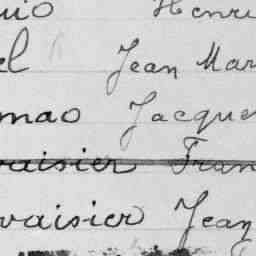 uio Henri
el Jean Mar
mao Jacques
vaisier Fran
vaisier Jean